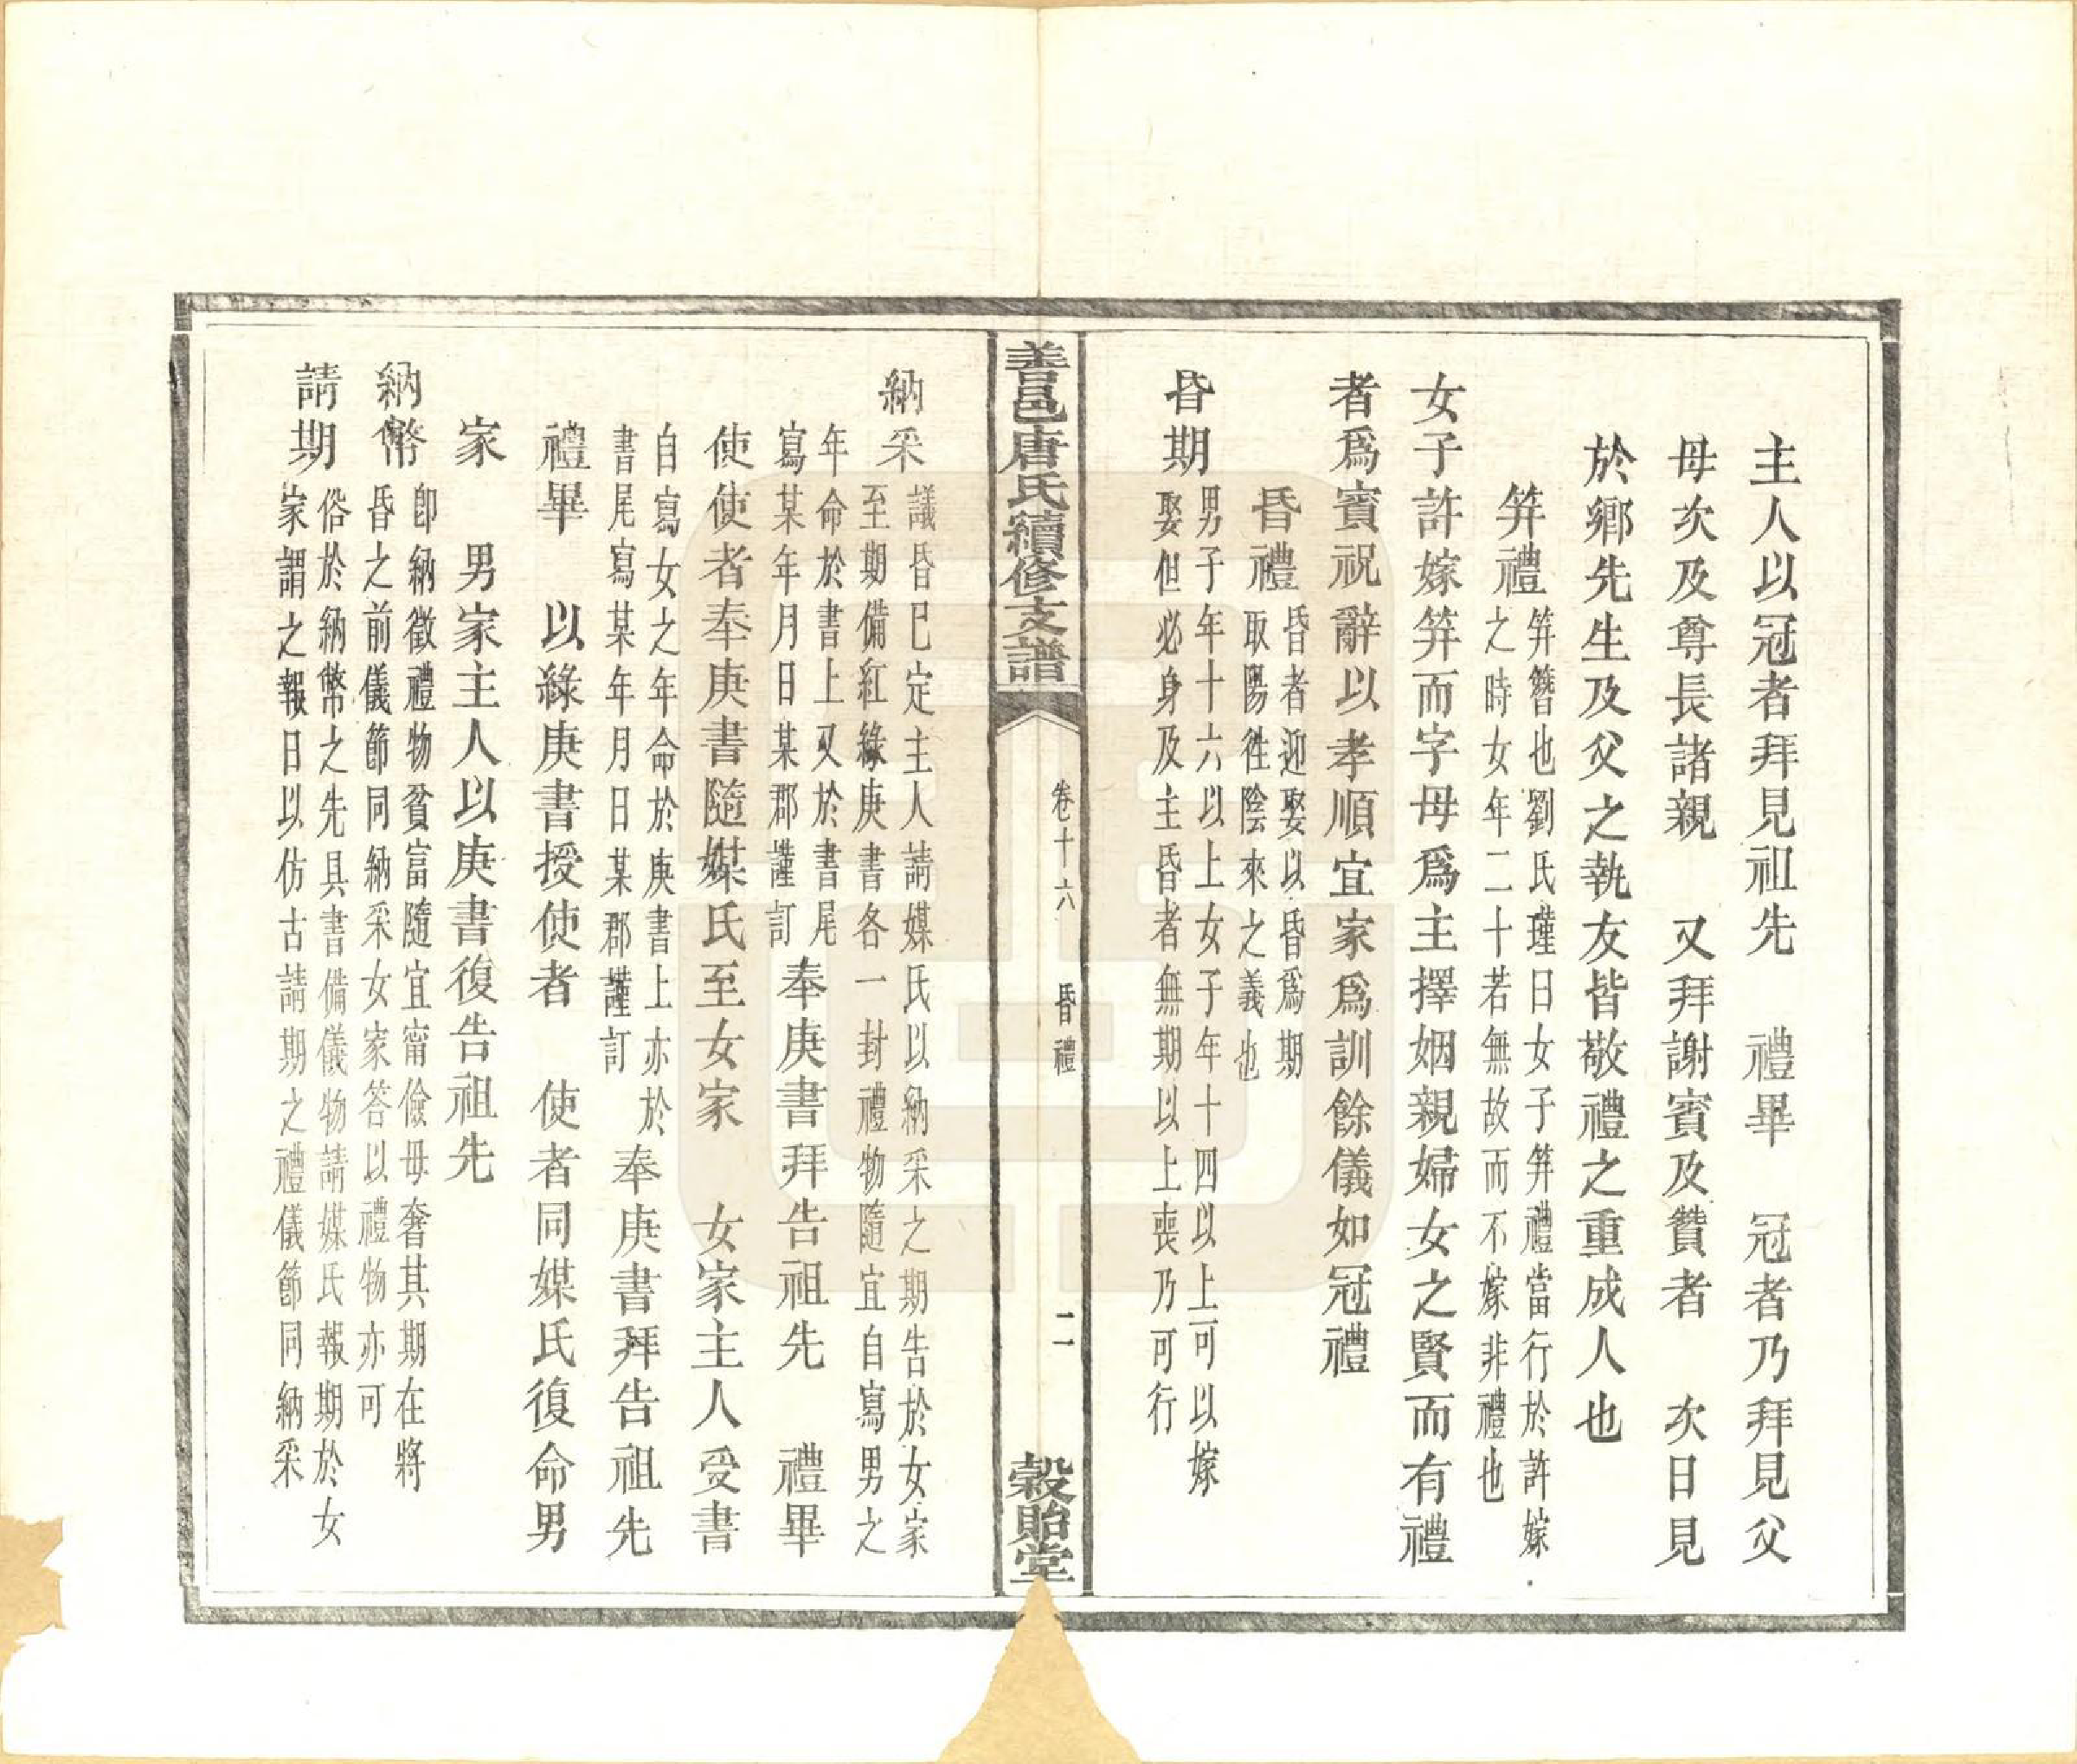 主人以冠者拜見祖先　禮畢　冠者乃拜見父
母次及尊長諸親　又拜謝賓及贊者　次日見
於鄉先生及父之執友皆敬禮之重成人也
笄禮
笄簪也劉氏瑾曰女子笄禮當行於許嫁
之時女年二十若無故而不嫁非禮也
女子許嫁笄而字母爲主擇姻親婦女之賢而有禮
者爲賓祝辭以孝順宜家爲訓餘儀如冠禮
昏禮
昏者迎娶以昏爲期
取陽徃陰來之義也
昏期
男子年十六以上女子年十四以上可以嫁
娶但必身及主昏者無期以上喪乃可行
善邑唐氏續修支譜
卷十六　昏禮
二
穀貽堂
納采
議昏已定主人請媒氏以納采之期告於女家
至期備紅緑庚書各一封禮物隨宜自寫男之
年命於書上又於書尾
寫某年月日某郡謹訂
奉庚書拜告祖先　禮畢
使使者奉庚書隨媒氏至女家　女家主人受書
自寫女之年命於庚書上亦於
書尾寫某年月日某郡謹訂
奉庚書拜告祖先
禮畢　以緑庚書授使者　使者同媒氏復命男
家　男家主人以庚書復告祖先
納幣
卽納徵禮物貧富隨宜甯儉毋奢其期在將
昏之前儀節同納采女家答以禮物亦可
請期
俗於納幣之先具書備儀物請媒氏報期於女
家謂之報日以仿古請期之禮儀節同納采